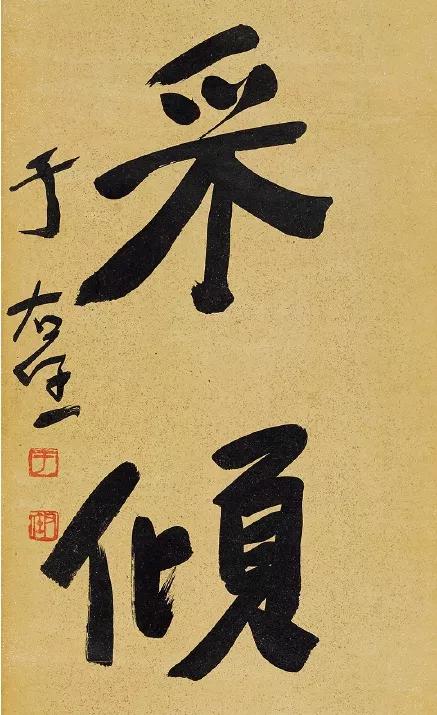 采傾
于右任
于